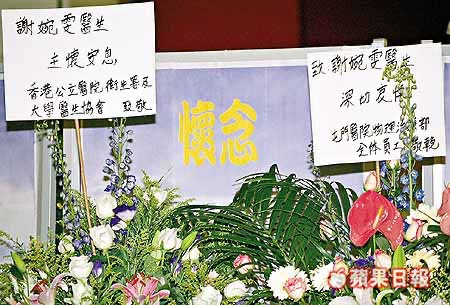 謝婉雯醫生
主懷安息
香港公立醫院衞生署及
大學醫生協會 致敬
懷念
致謝婉雯醫生
深切哀悼
屯門醫院物理治療部
全體員工敬輓
蘋果日報